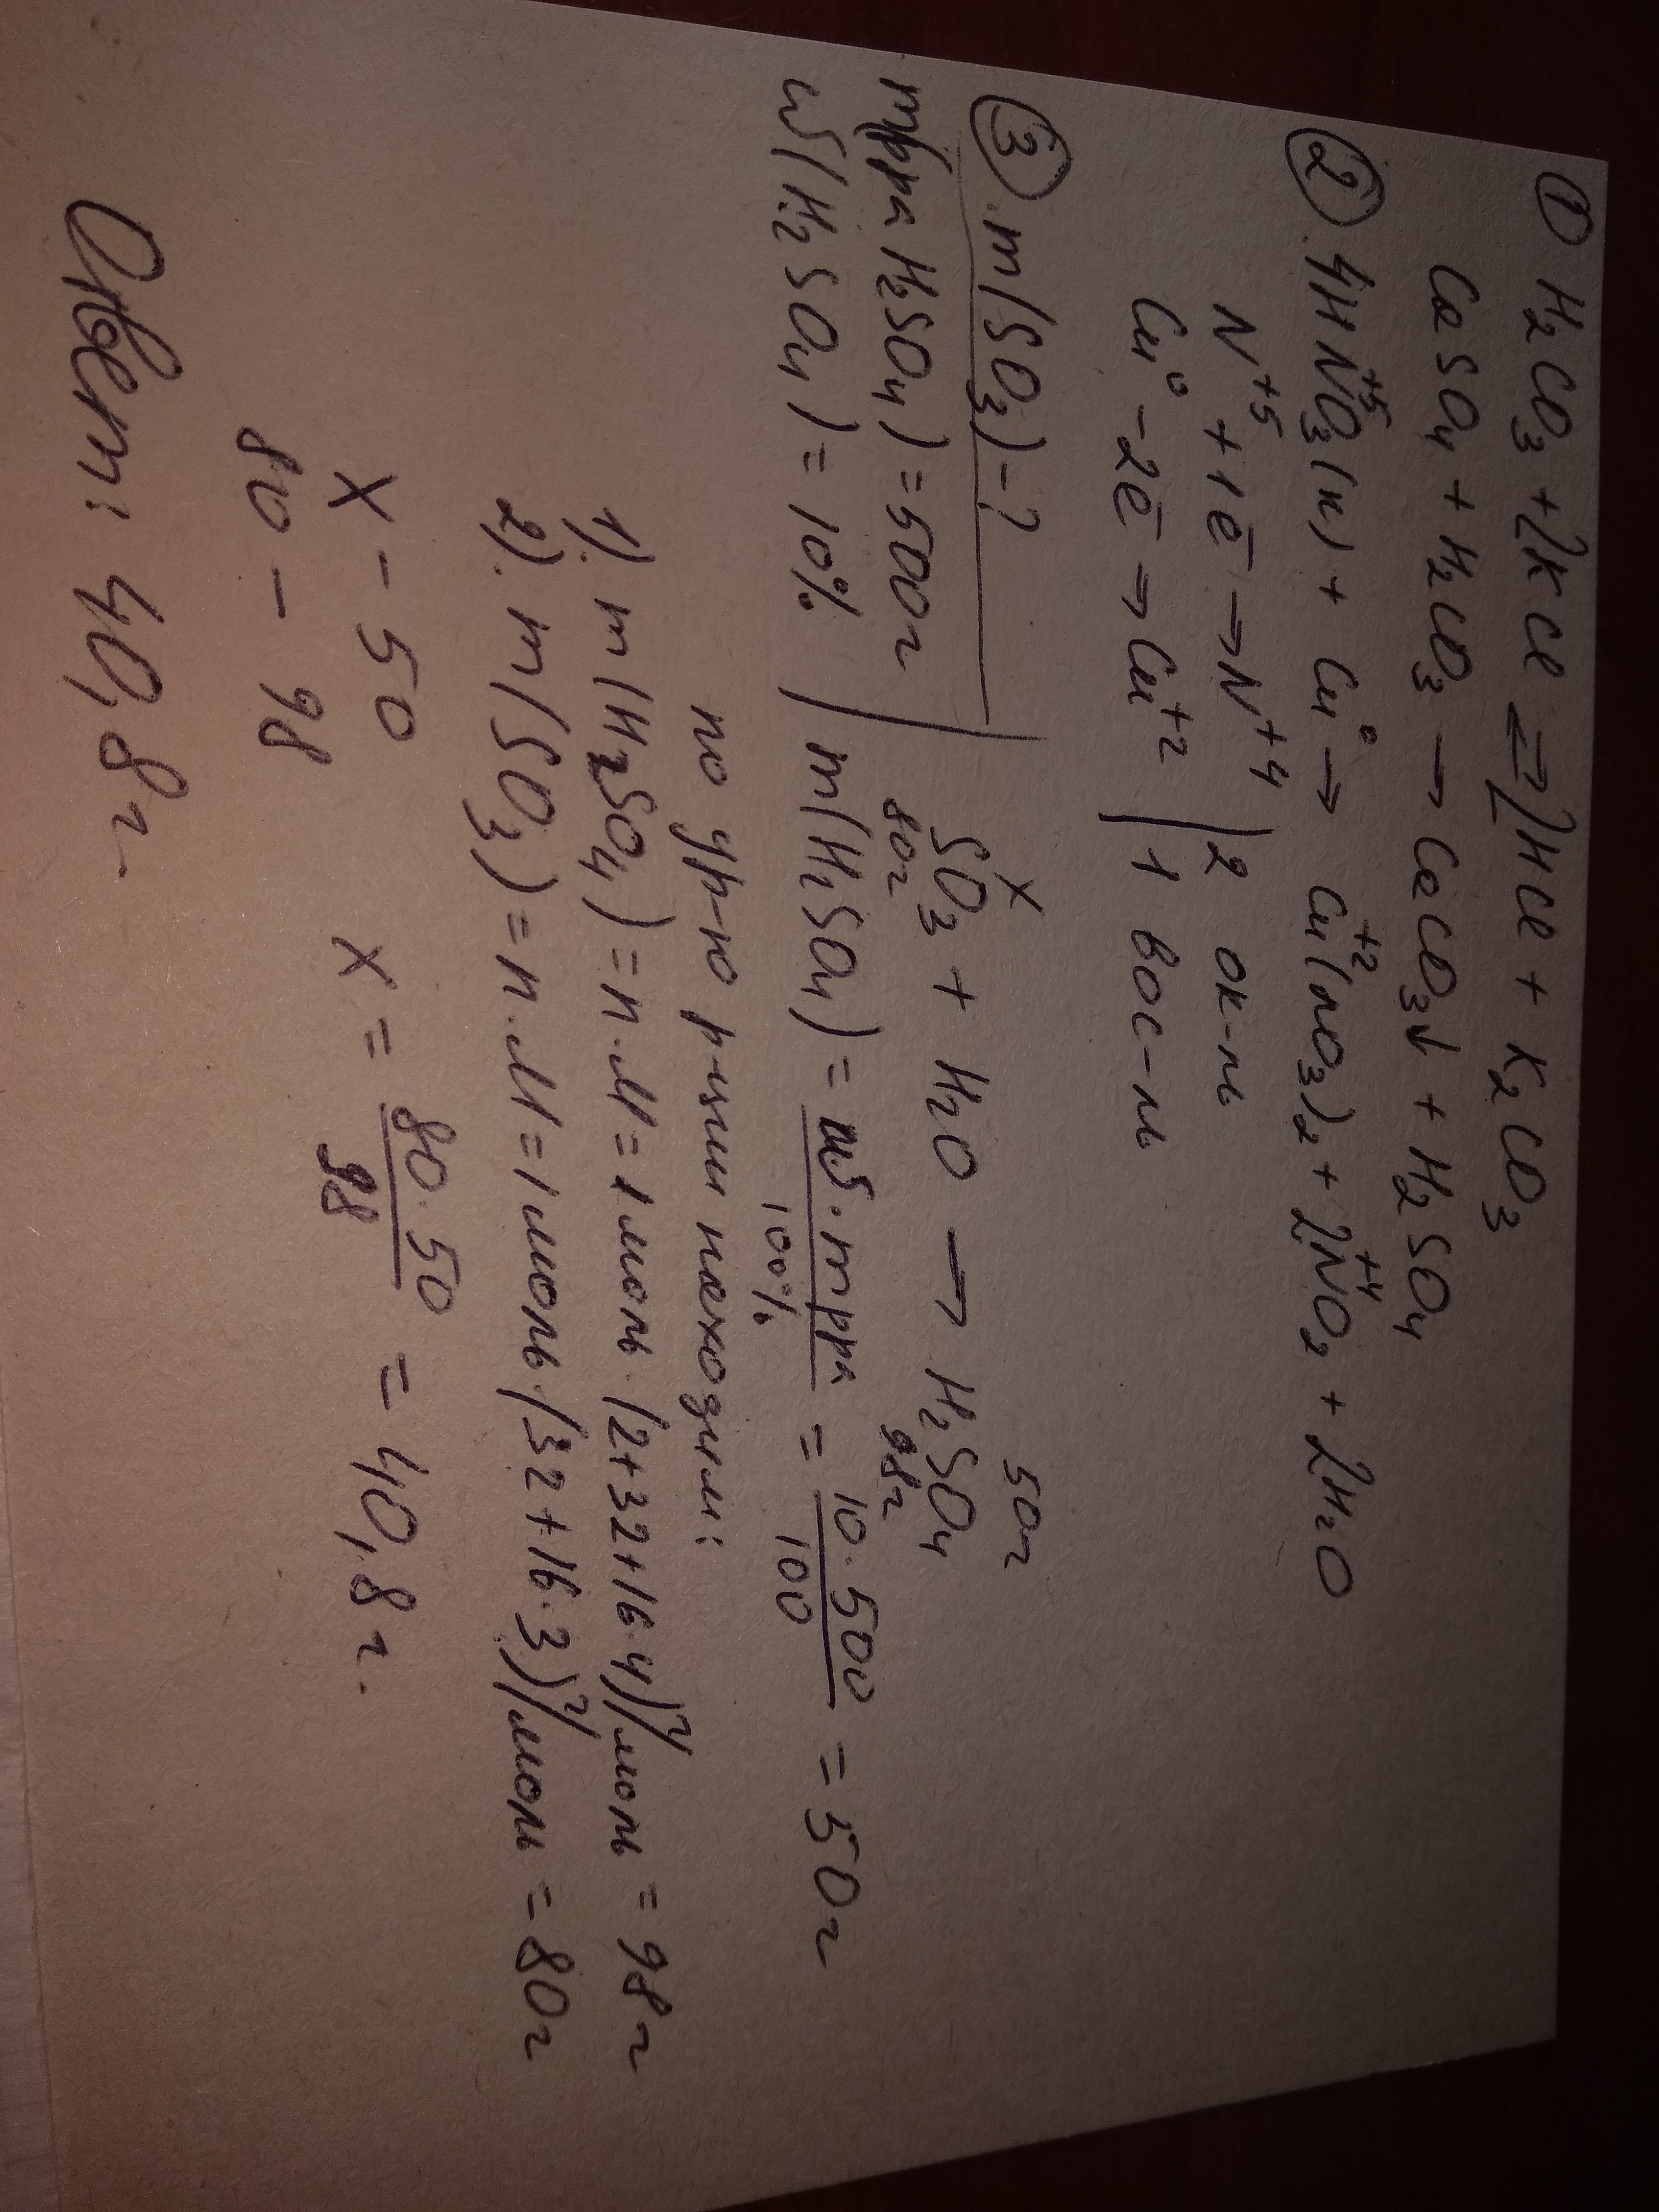 ① H₂CO₃ + 2KCl ⇒ 2HCl + K₂CO₃
CaSO₄ + H₂CO₃ → CaCO₃↓ + H₂SO₄
②. 4HN⁺⁵O₃(к) + Cu⁰ → Cu⁺²(NO₃)₂ + 2N⁺⁴O₂ + 2H₂O
N⁺⁵ + 1ē → N⁺⁴ | 2 ок-ль
Cu⁰ - 2ē → Cu⁺² | 1 вос-ль
③. m(SO₃) - ?
mр-ра H₂SO₄) = 500г
w(H₂SO₄) = 10%
x 50г
SO₃ + H₂O → H₂SO₄
80г 98г
m(H₂SO₄) = w · mр-ра / 100% = 10 · 500 / 100 = 50г
по ур-ю р-ции находим:
1). m(H₂SO₄) = n · M = 1 моль · (2+32+16·4) г/моль = 98г
2). m(SO₃) = n · M = 1 моль · (32+16·3) г/моль = 80г
x - 50
80 - 98
x = 80 · 50 / 98 = 40,8 г.
Ответ: 40,8г.